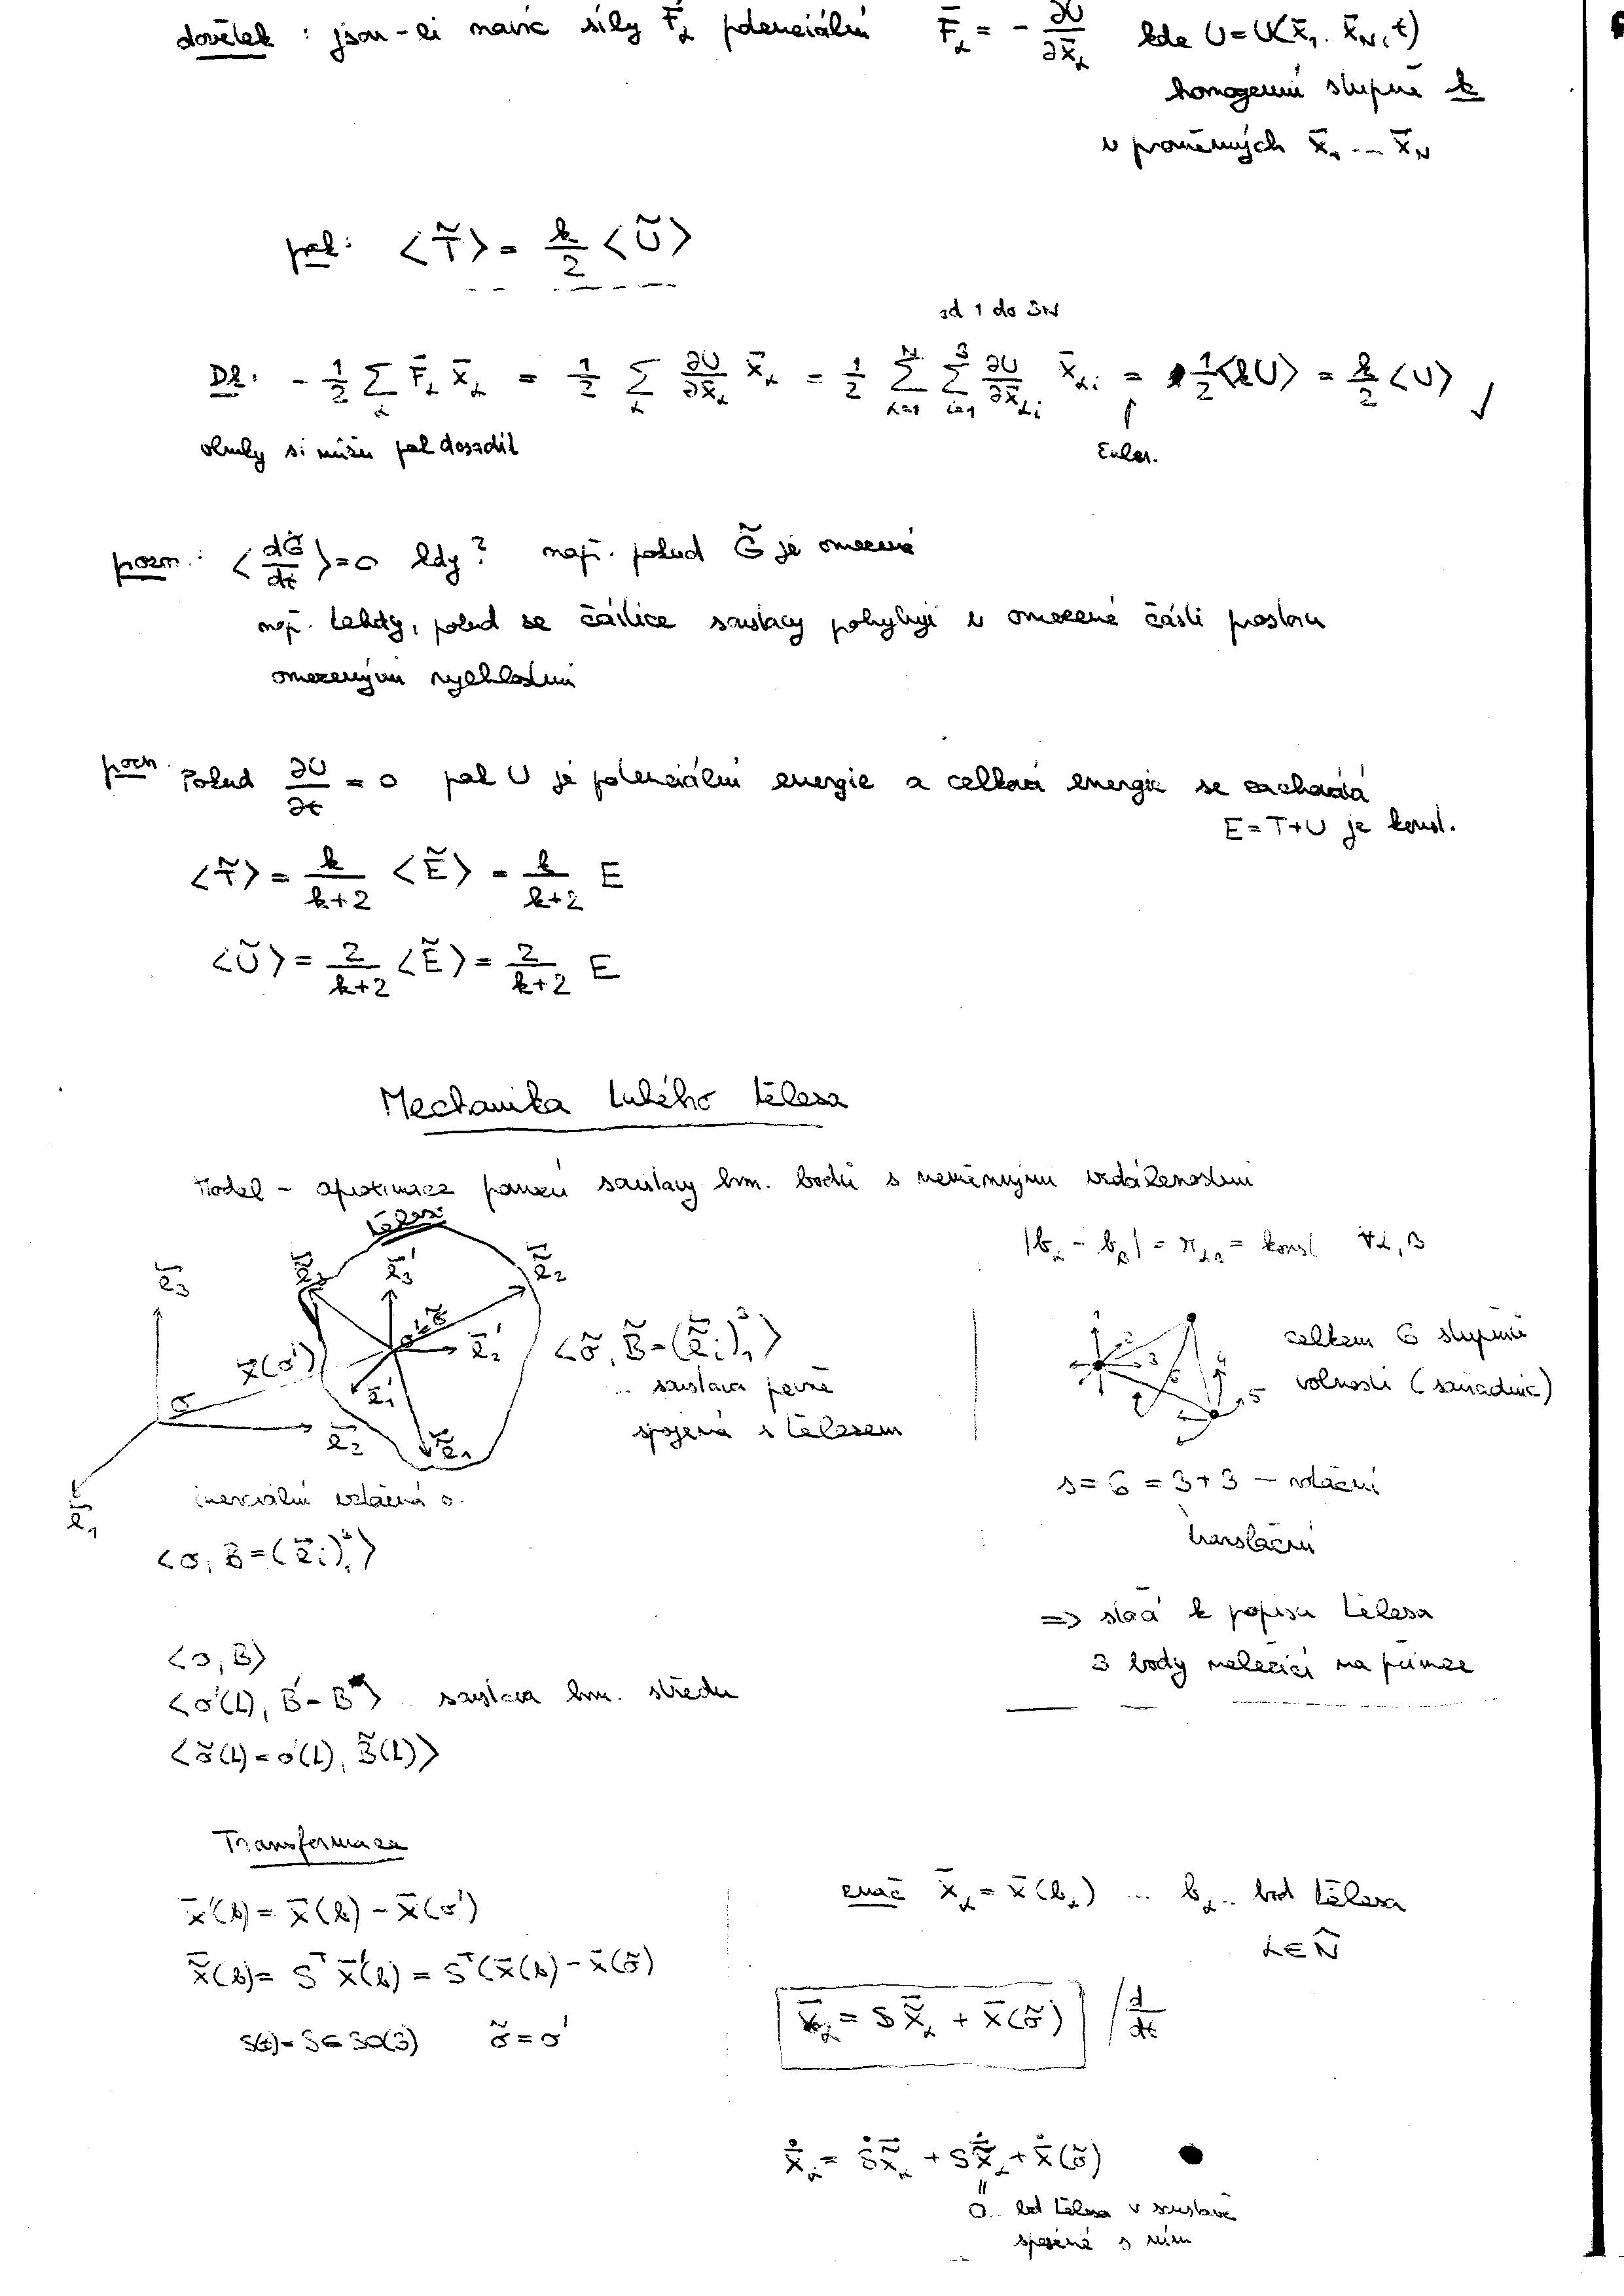 dovětek : jsou-li navíc síly F̄_α potenciální F̄_α = - ∂U/∂x̄_α kde U = U(x̄₁ .. x̄_N, t)
homogenní stupně k
v proměnných x̄₁ ... x̄_N
pak: ⟨T̃⟩ = k/2 ⟨Ũ⟩
od 1 do 3N
Dk: - 1/2 ∑_α F̄_α x̄_α = 1/2 ∑_α ∂U/∂x̄_α x̄_α = 1/2 ∑_{α=1}^{N} ∑_{i=1}^{3} ∂U/∂x̄_{αi} x̄_{αi} = 1/2 ⟨kU⟩ = k/2 ⟨U⟩ ✓
si můžu pak dosadit
Euler.
pozn.: ⟨dG̃/dt⟩ = 0 kdy? např. pokud G̃ je omezené
např. tehdy, pokud se částice soustavy pohybují v omezené části prostoru
omezenými rychlostmi
pozn. Pokud ∂U/∂t = 0 pak U je potenciální energie a celková energie se zachovává
E = T+U je konst.
⟨T̃⟩ = k/(k+2) ⟨Ẽ⟩ = k/(k+2) E
⟨Ũ⟩ = 2/(k+2) ⟨Ẽ⟩ = 2/(k+2) E
Mechanika tuhého tělesa
Model - aproximace pomocí soustavy hm. bodů s neměnnými vzdálenostmi
těleso
|b_α - b_β| = r_αβ = konst ∀α,β
ē₃ ẽ₃ ē₃' ẽ₂
x̄(σ') σ'=σ̃ ē₂' ē₁' ẽ₁
σ ē₂ ē₁
⟨σ̃, B̃=(ẽ_i)₁³⟩
.. soustava pevně
spojená s tělesem
1 2 3 4 5 6
celkem 6 stupňů
volnosti (souřadnic)
inerciální vztažná s.
⟨σ, B=(ē_i)₁³⟩
s = 6 = 3+3 - rotační
translační
⟹ stačí k popisu tělesa
3 body neležící na přímce
⟨σ, B⟩
⟨σ'(t), B'=B⟩ .. soustava hm. středu
⟨σ̃(t)=σ'(t), B̃(t)⟩
Transformace
x̄'(b) = x̄(b) - x̄(σ')
x̃(b) = Sᵀ x̄'(b) = Sᵀ(x̄(b) - x̄(σ̃)
S(t) = S ∈ SO(3) σ̃ = σ'
znač x̄_α = x̄(b_α) ... b_α .. bod tělesa
α ∈ N̂
x̄_α = S x̃_α + x̄(σ̃) / d/dt
ẋ_α = Ṡ x̃_α + S ẋ̃_α + ẋ(σ̃)
"
0 .. bod tělesa v soustavě
spojené s ním